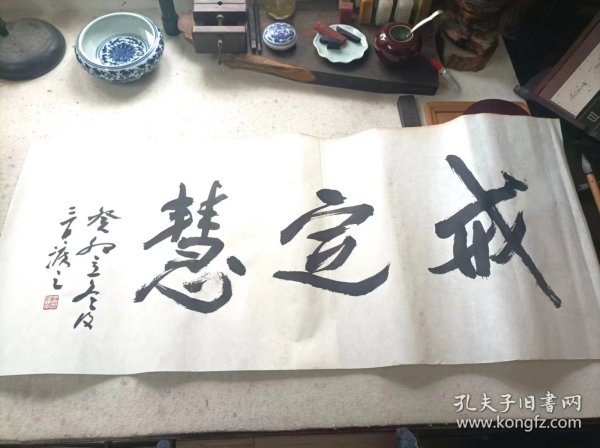 戒定慧
癸卯立冬後
孔夫子旧書网
www.kongfz.com